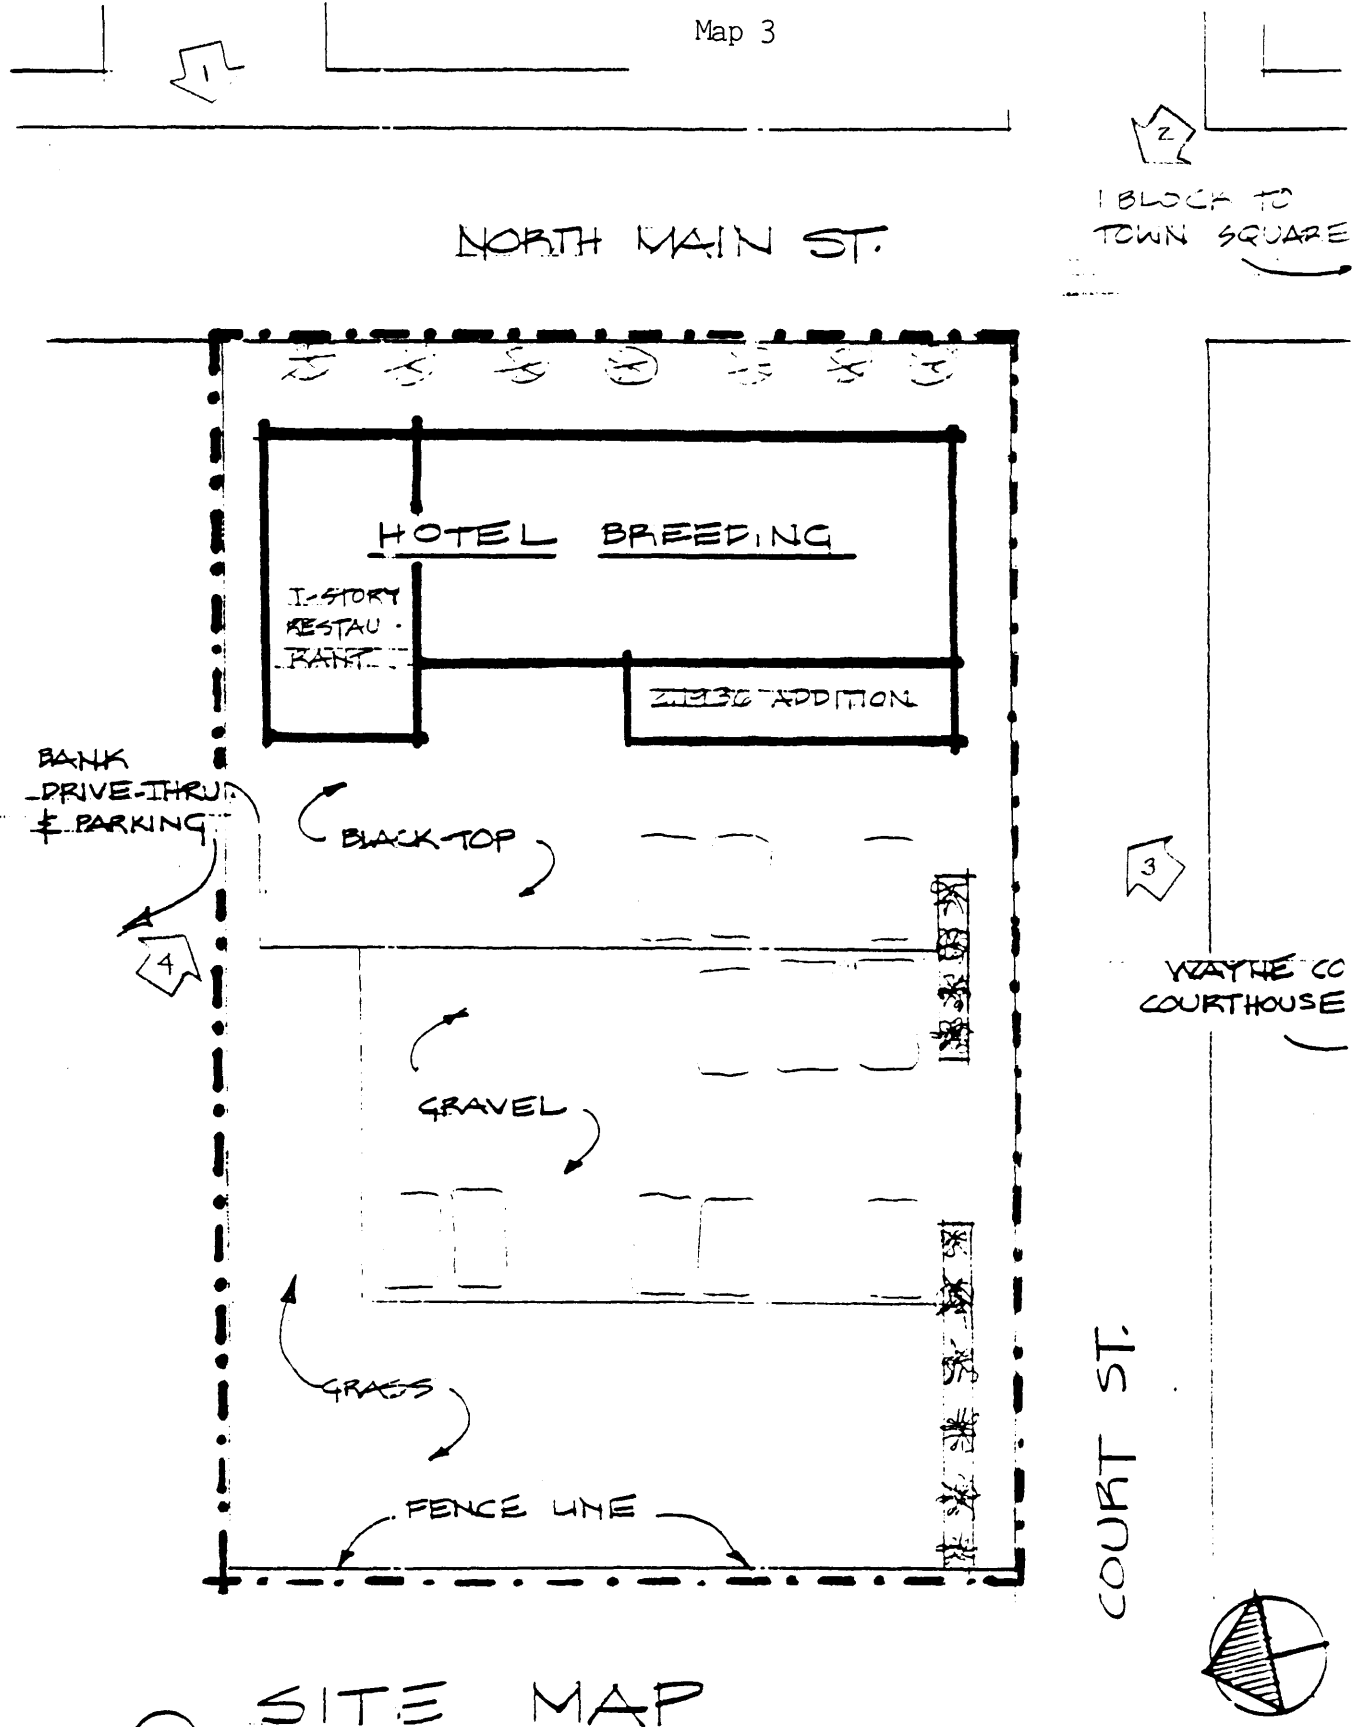 Map 3
1
2
1 BLOCK TO
TOWN SQUARE
NORTH MAIN ST.
HOTEL BREEDING
1-STORY
RESTAU-
RANT
ADDITION
BANK
DRIVE-THRU
& PARKING
BLACK-TOP
3
4
WAYNE CO
COURTHOUSE
GRAVEL
GRASS
COURT ST.
FENCE LINE
SITE MAP